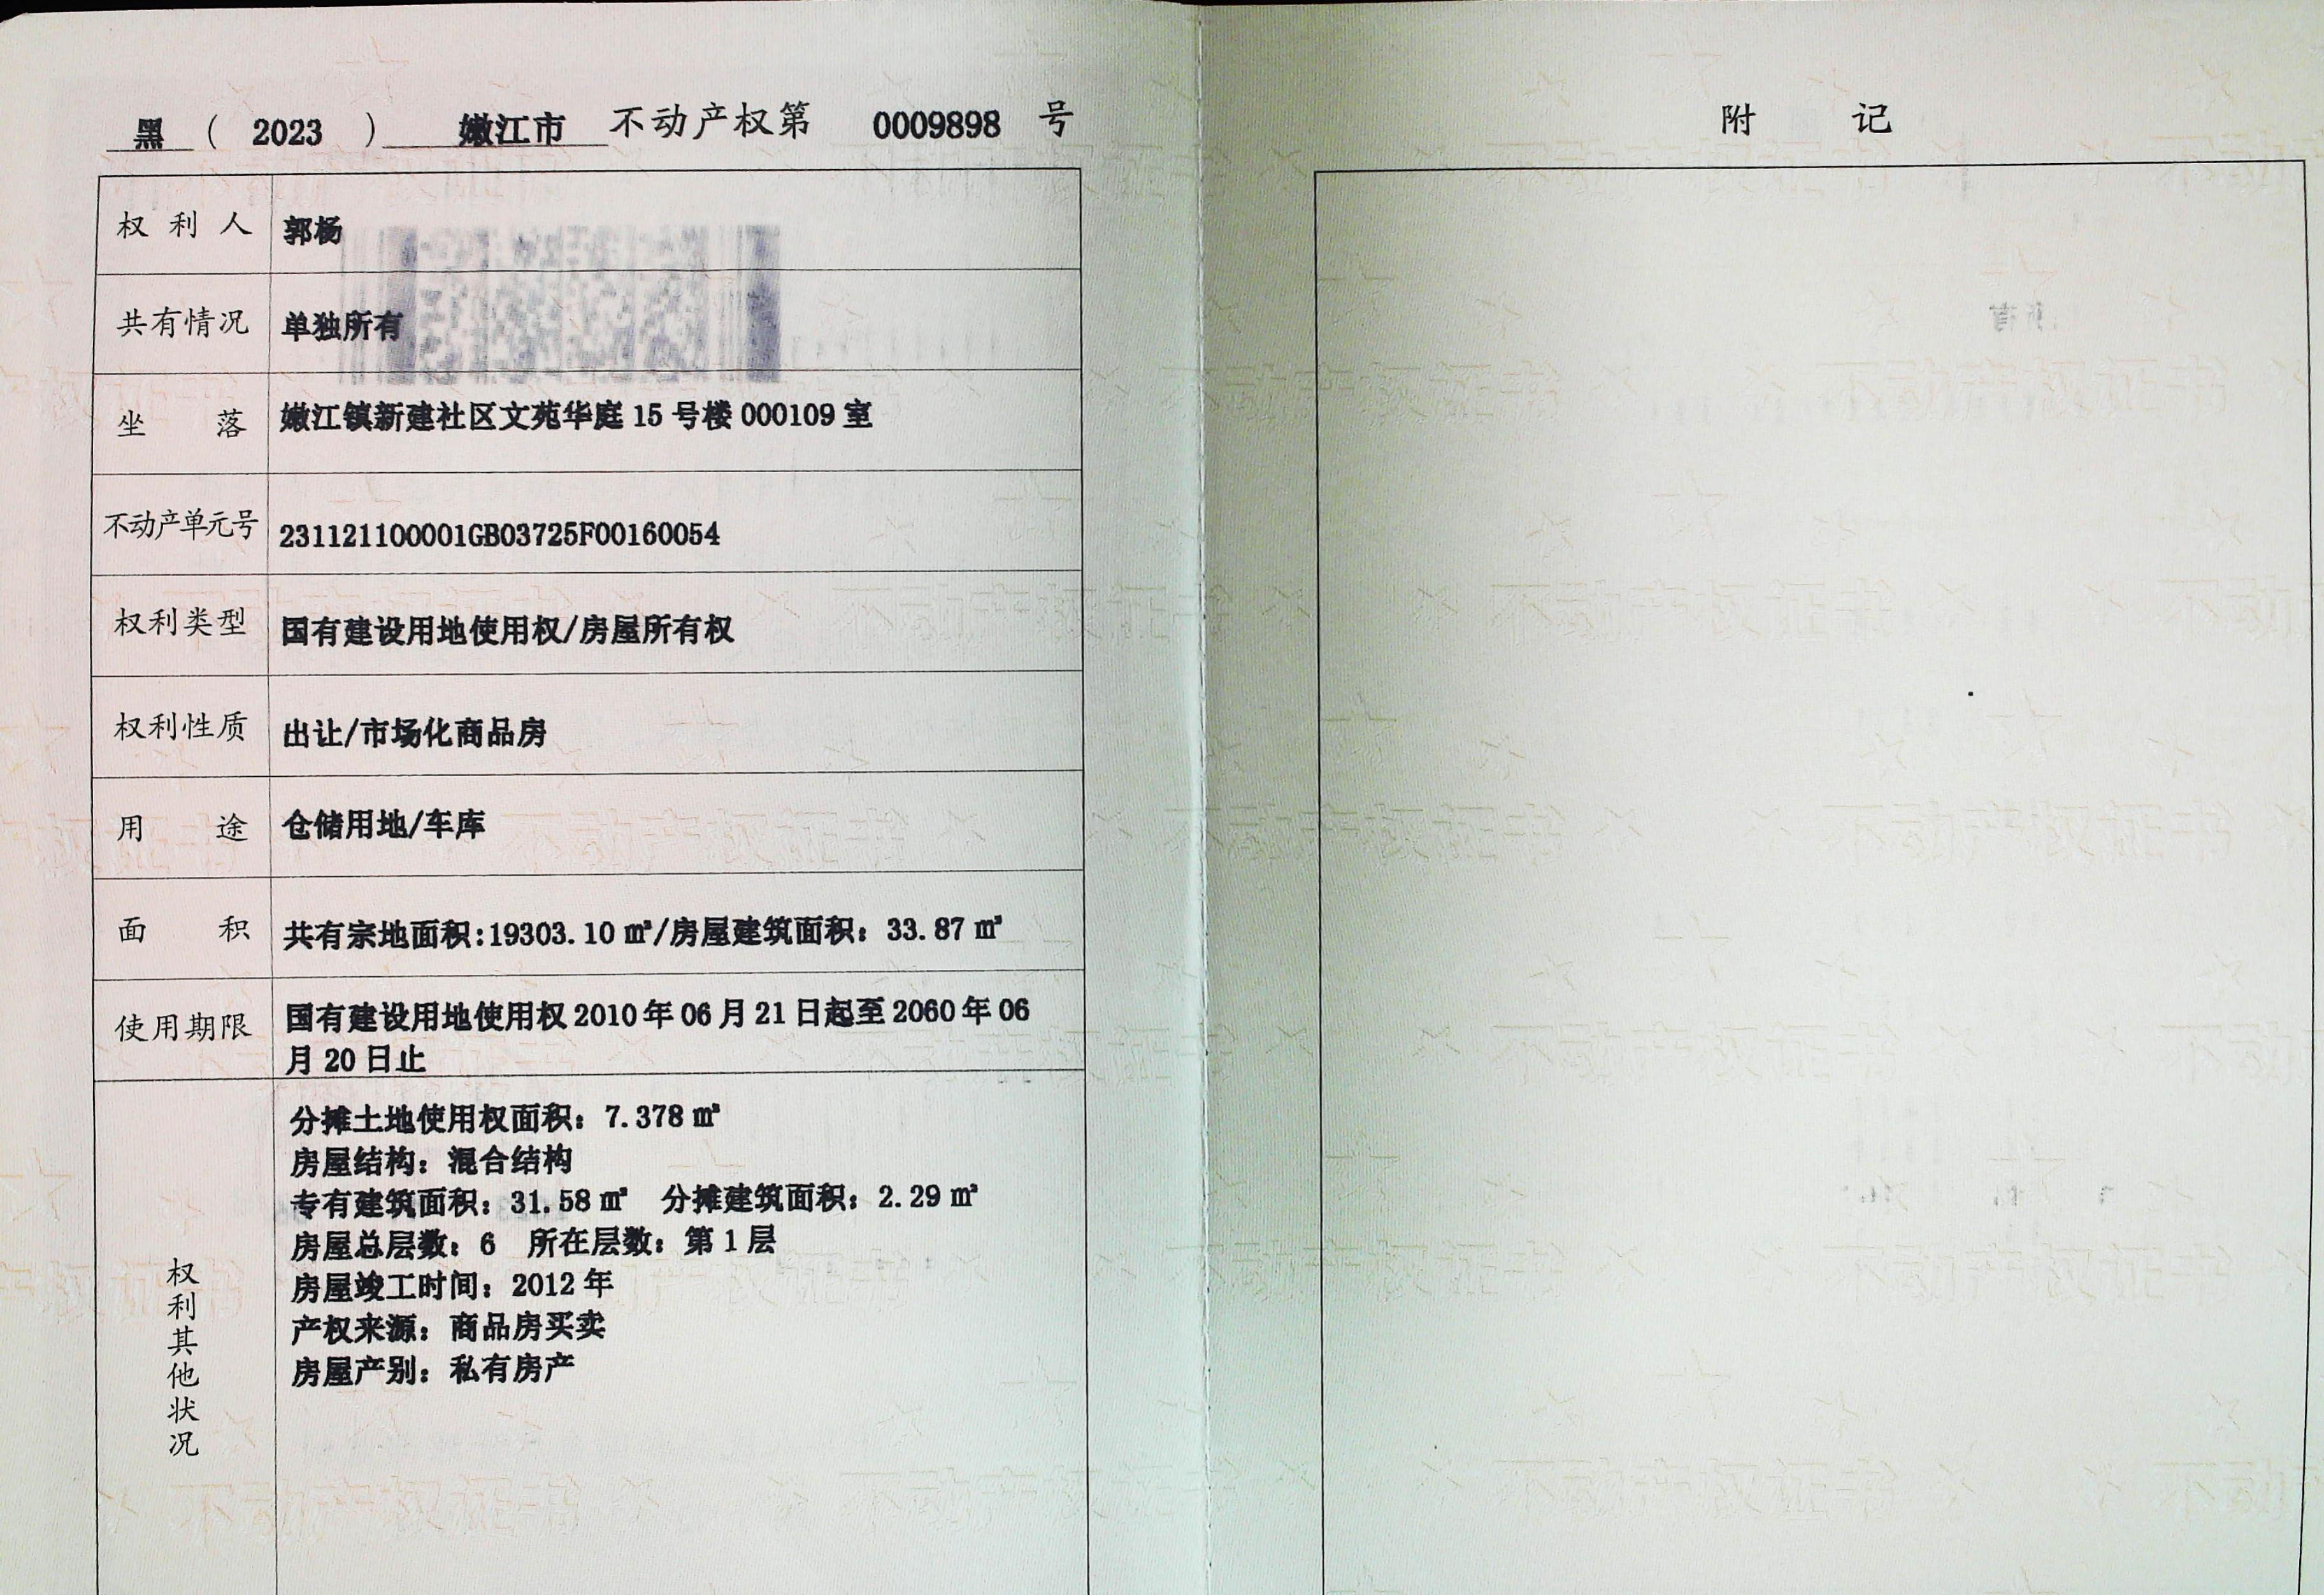 黑 （ 2023 ） 嫩江市 不动产权第 0009898 号
权利人 郭杨
共有情况 单独所有
坐落 嫩江镇新建社区文苑华庭 15 号楼 000109 室
不动产单元号 231121100001GB03725F00160054
权利类型 国有建设用地使用权/房屋所有权
权利性质 出让/市场化商品房
用途 仓储用地/车库
面积 共有宗地面积:19303.10 ㎡/房屋建筑面积：33.87 ㎡
使用期限 国有建设用地使用权 2010 年 06 月 21 日起至 2060 年 06
月 20 日止
权利其他状况
分摊土地使用权面积：7.378 ㎡
房屋结构：混合结构
专有建筑面积：31.58 ㎡ 分摊建筑面积：2.29 ㎡
房屋总层数：6 所在层数：第 1 层
房屋竣工时间：2012 年
产权来源：商品房买卖
房屋产别：私有房产
附 记